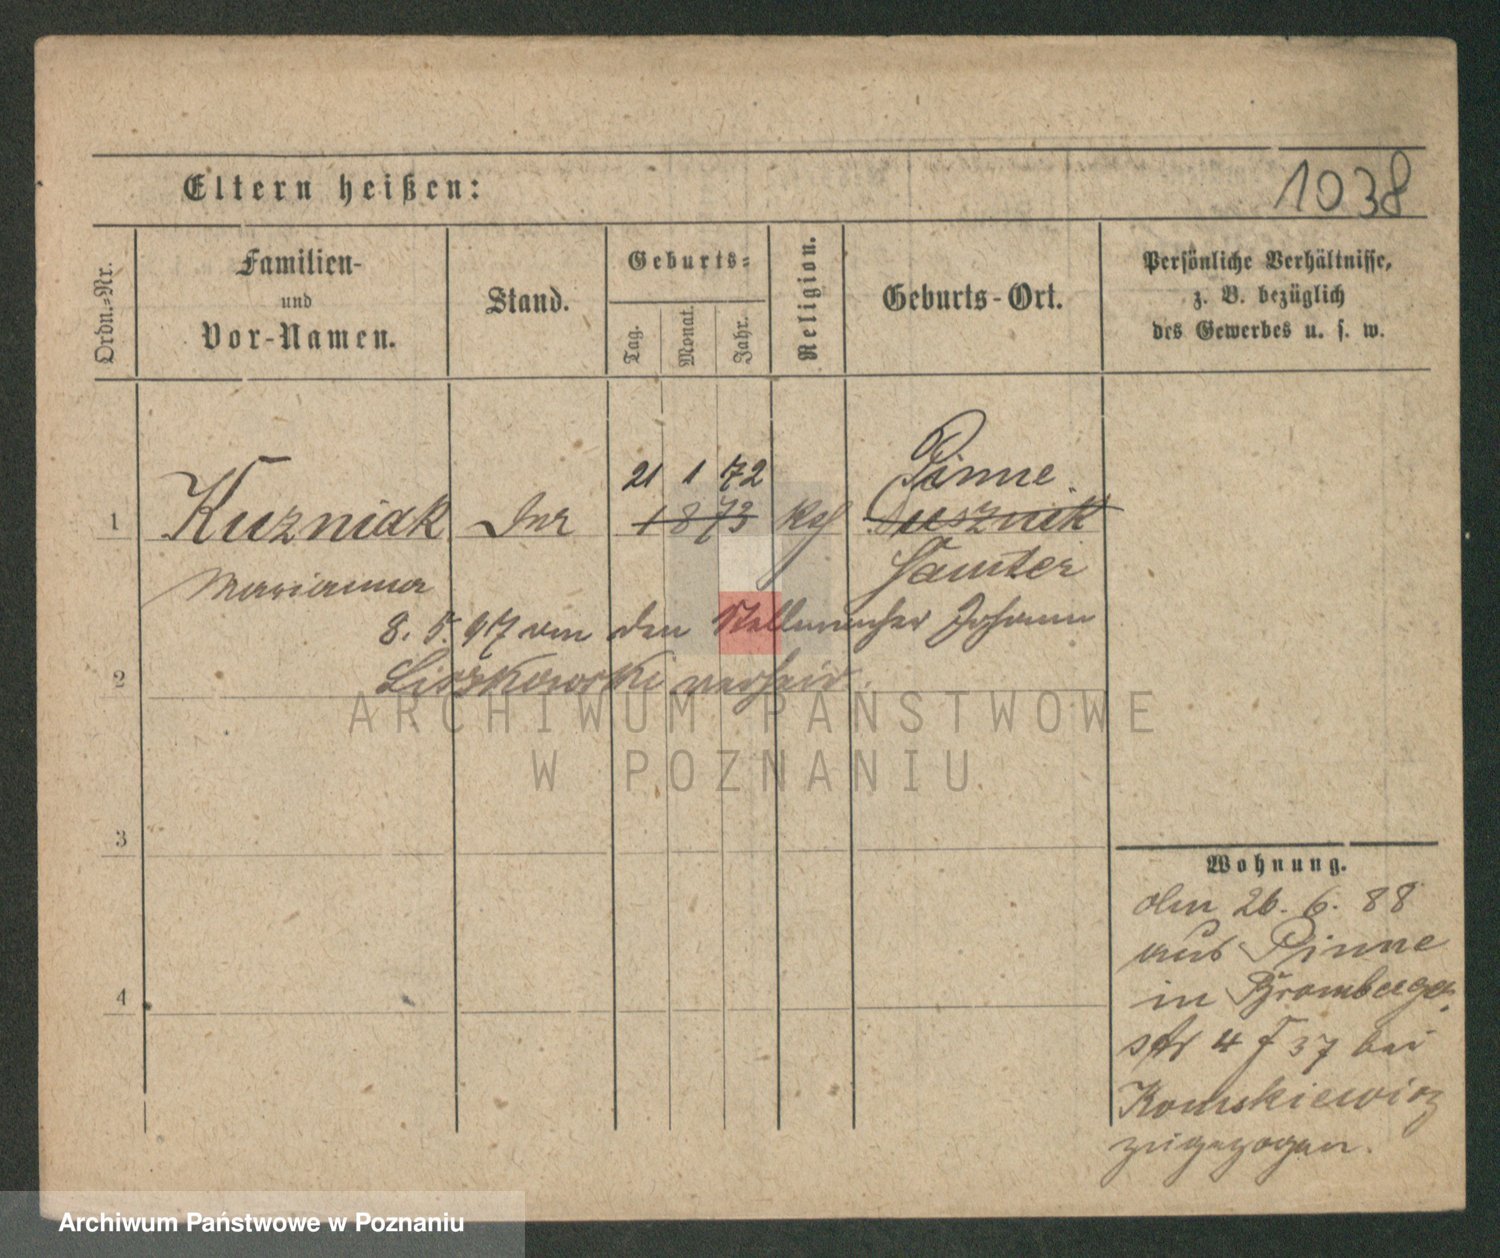 Eltern heißen:
1038
Ordn.-Nr.
Familien-
und
Vor-Namen.
Stand.
Geburts-
Tag.
Monat.
Jahr.
Religion.
Geburts-Ort.
Persönliche Verhältnisse,
z. B. bezüglich
des Gewerbes u. s. w.
21 1 72
Pinne
1 Kuzniak 1873 kath Dusznik
Marianna
Samter
8. 5. 97 den Stellmacher Johann
2 Liszkowski verheir.
ARCHIWUM PAŃSTWOWE
W POZNANIU
3
4
Wohnung.
26. 6. 88
aus Pinne
in Bromberger
str 4 F 37 bei
Komskiewicz
zugezogen.
Archiwum Państwowe w Poznaniu